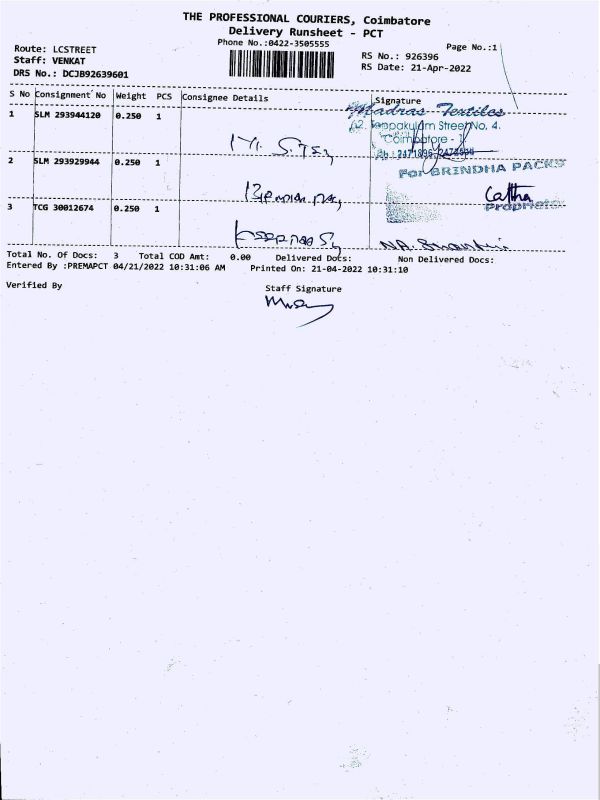 THE PROFESSIONAL COURIERS, Coimbatore
Delivery Runsheet - PCT
Phone No.:0422-3505555
Page No.:1
Route: LCSTREET
Staff: VENKAT
DRS No.: DCJB92639601
RS No.: 926396
RS Date: 21-Apr-2022
S No Consignment No Weight PCS Consignee Details Signature
1 SLM 293944120 0.250 1
Madras Textiles
Street No. 4.
Coimbatore - 1
2 SLM 293929944 0.250 1
For BRINDHA PACKS
Proprietor
3 TCG 30012674 0.250 1
Total No. Of Docs: 3 Total COD Amt: 0.00 Delivered Docs: Non Delivered Docs:
Entered By :PREMAPCT 04/21/2022 10:31:06 AM Printed On: 21-04-2022 10:31:10
Verified By Staff Signature